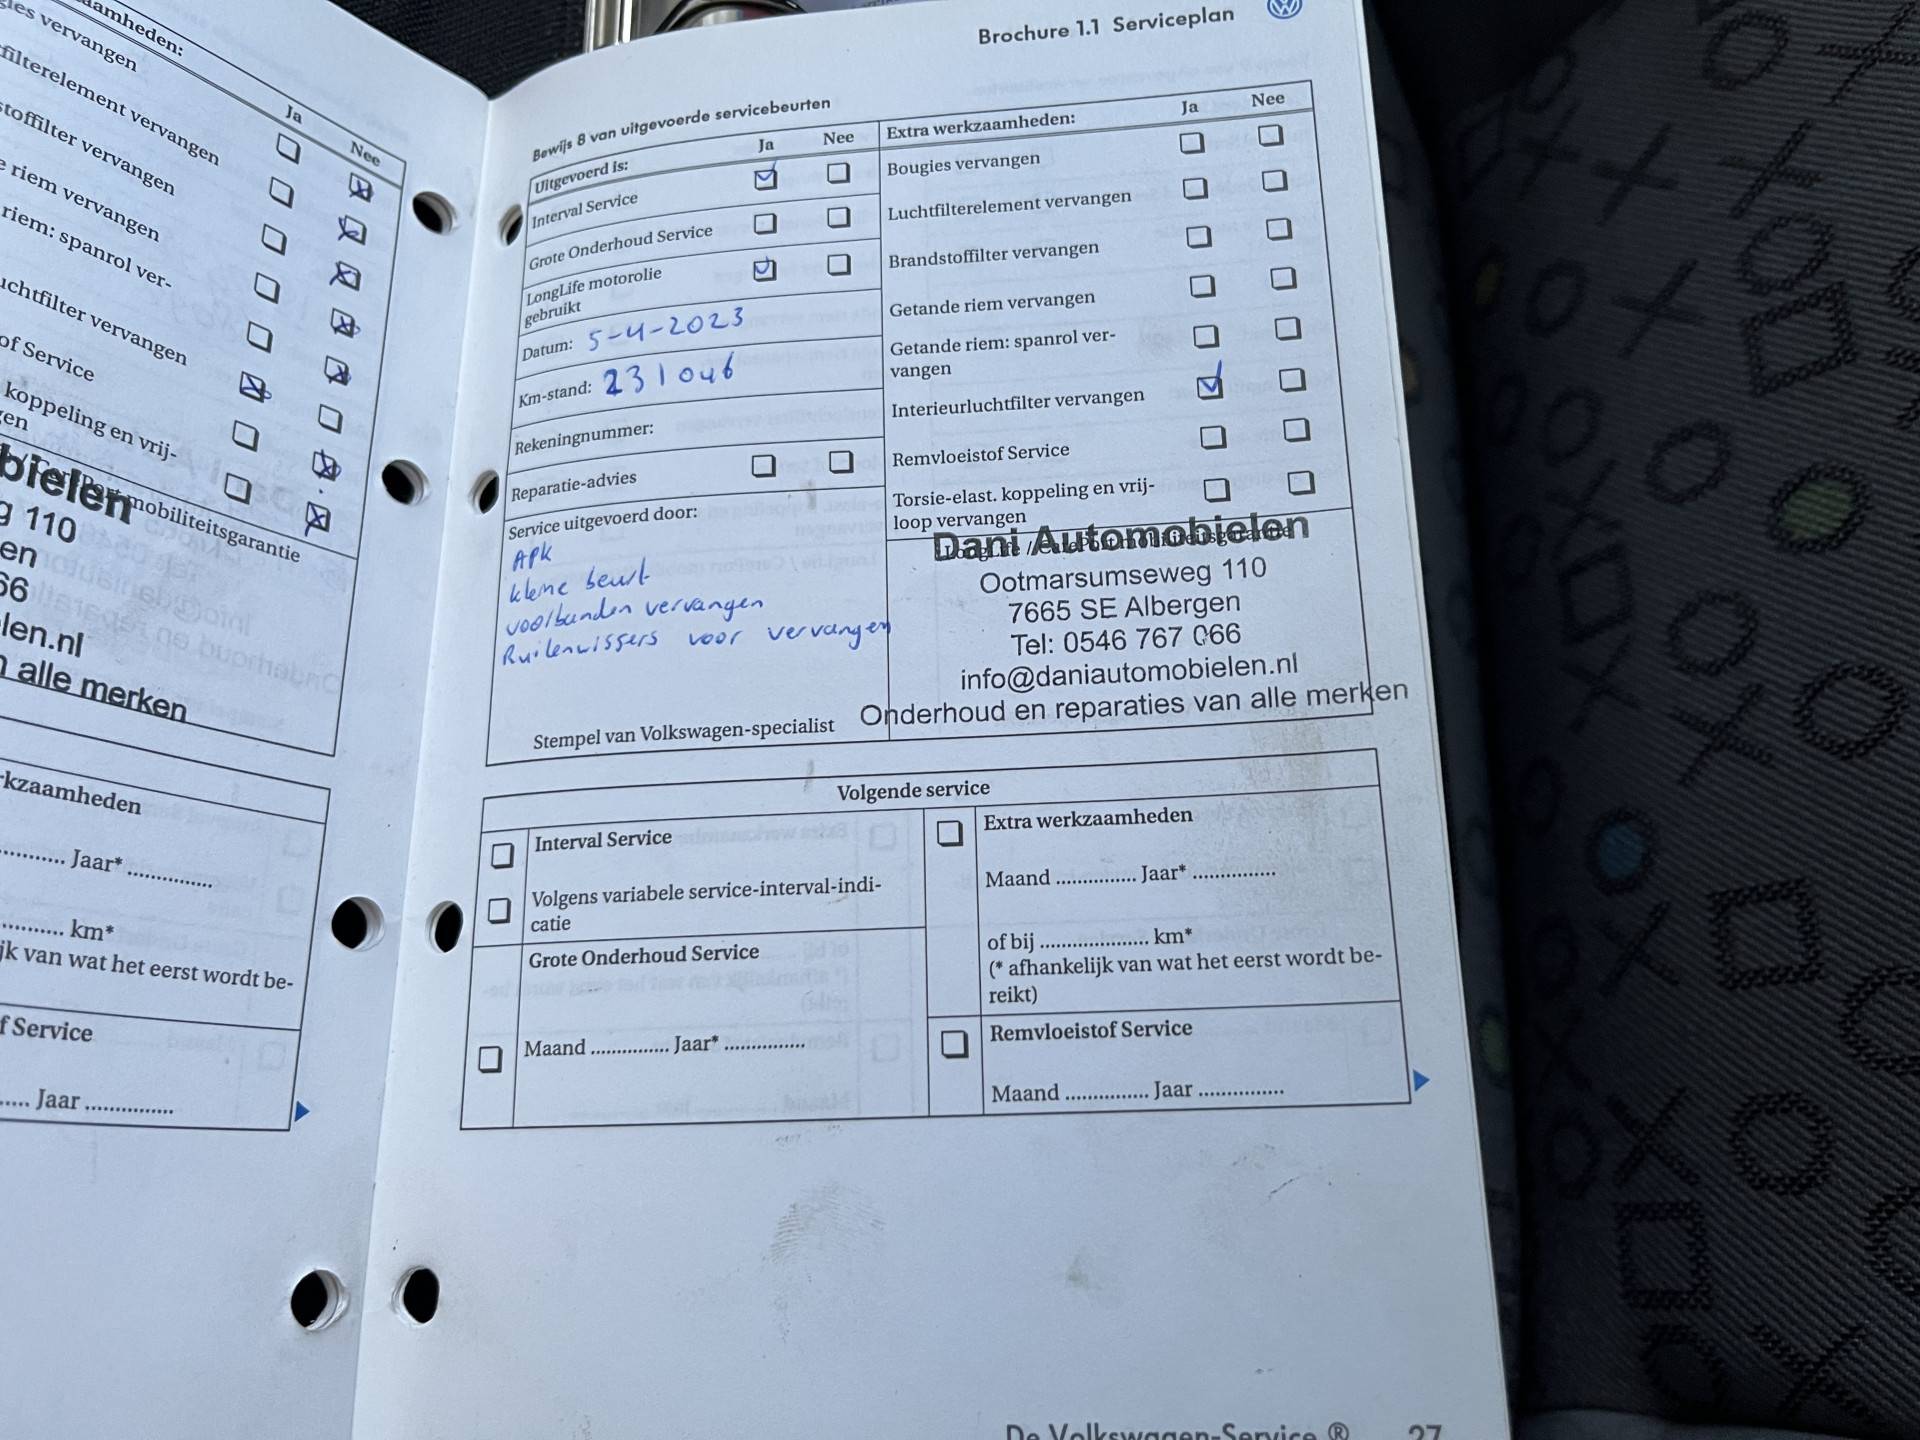 amheden:
vervangen
Ja
Nee
filterelement vervangen
stoffilter vervangen
riem vervangen
riem: spanrol ver-
uchtfilter vervangen
of Service
koppeling en vrij-
gen
mobiliteitsgarantie
bielen
g 110
en
66
len.nl
alle merken
kzaamheden
........... Jaar* ...............
........... km*
jk van wat het eerst wordt be-
f Service
..... Jaar ...............
Brochure 1.1 Serviceplan
Bewijs 8 van uitgevoerde servicebeurten
Uitgevoerd is:
Ja
Nee
Interval Service
Grote Onderhoud Service
LongLife motorolie
gebruikt
Datum: 5-4-2023
Km-stand: 231046
Rekeningnummer:
Reparatie-advies
Service uitgevoerd door:
APK
kleine beurt
voorbanden vervangen
Ruitenwissers voor vervangen
Stempel van Volkswagen-specialist
Extra werkzaamheden:
Ja
Nee
Bougies vervangen
Luchtfilterelement vervangen
Brandstoffilter vervangen
Getande riem vervangen
Getande riem: spanrol ver-
vangen
Interieurluchtfilter vervangen
Remvloeistof Service
Torsie-elast. koppeling en vrij-
loop vervangen
LongLife / CarePort mobiliteitsgarantie
Dani Automobielen
Ootmarsumseweg 110
7665 SE Albergen
Tel: 0546 767 066
info@daniautomobielen.nl
Onderhoud en reparaties van alle merken
Volgende service
Interval Service
Volgens variabele service-interval-indi-
catie
Grote Onderhoud Service
Maand ............... Jaar* ...............
Extra werkzaamheden
Maand ............... Jaar* ...............
of bij .................... km*
(* afhankelijk van wat het eerst wordt be-
reikt)
Remvloeistof Service
Maand ............... Jaar ...............
De Volkswagen-Service ® 27